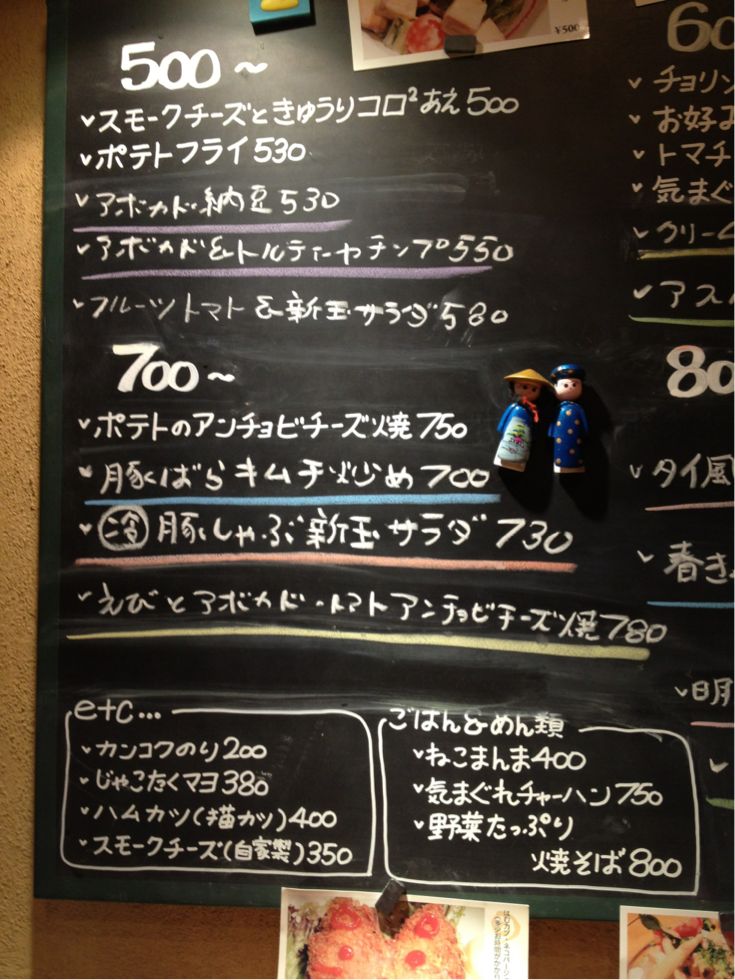 ¥500
500~
スモークチーズときゅうりコロ²あえ 500
ポテトフライ 530
アボカド納豆 530
アボカド&トルティーヤチップ 550
フルーツトマト&新玉サラダ 580
700~
ポテトのアンチョビチーズ焼 750
豚ばらキムチ炒め 700
冷 豚しゃぶ新玉サラダ 730
えびとアボカド・トマトアンチョビチーズ焼 780
etc...
カンコクのり 200
じゃこたくマヨ 380
ハムカツ(猫カツ) 400
スモークチーズ(自家製) 350
ごはん&めん類
ねこまんま 400
気まぐれチャーハン 750
野菜たっぷり
焼そば 800
60
チョリソ
お好み
トマチ
気まぐ
クリーム
アスパ
80
タイ風
春き